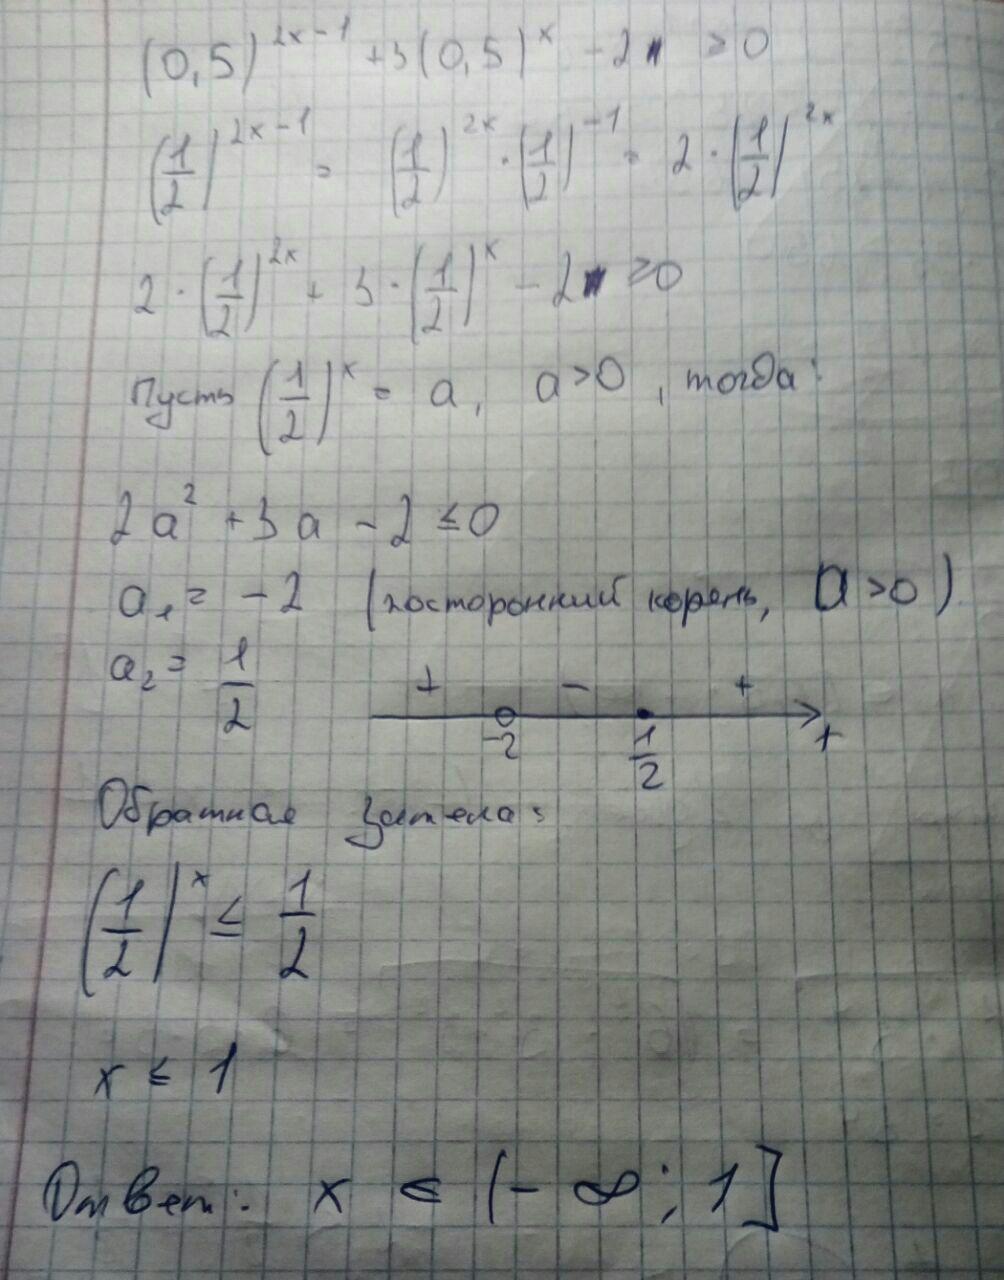 (0,5)^{2x-1} + 3(0,5)^x - 2 ≥ 0
(1/2)^{2x-1} = (1/2)^{2x} · (1/2)^{-1} = 2 · (1/2)^{2x}
2 · (1/2)^{2x} + 3 · (1/2)^x - 2 ≥ 0
Пусть (1/2)^x = a, a > 0, тогда:
2a^2 + 3a - 2 ≤ 0
a_1 = -2 (посторонний корень, a > 0)
a_2 = 1/2
+ - +
-2 1/2 x
Обратная замена:
(1/2)^x ≤ 1/2
x ≤ 1
Ответ: x ∈ (-∞; 1]